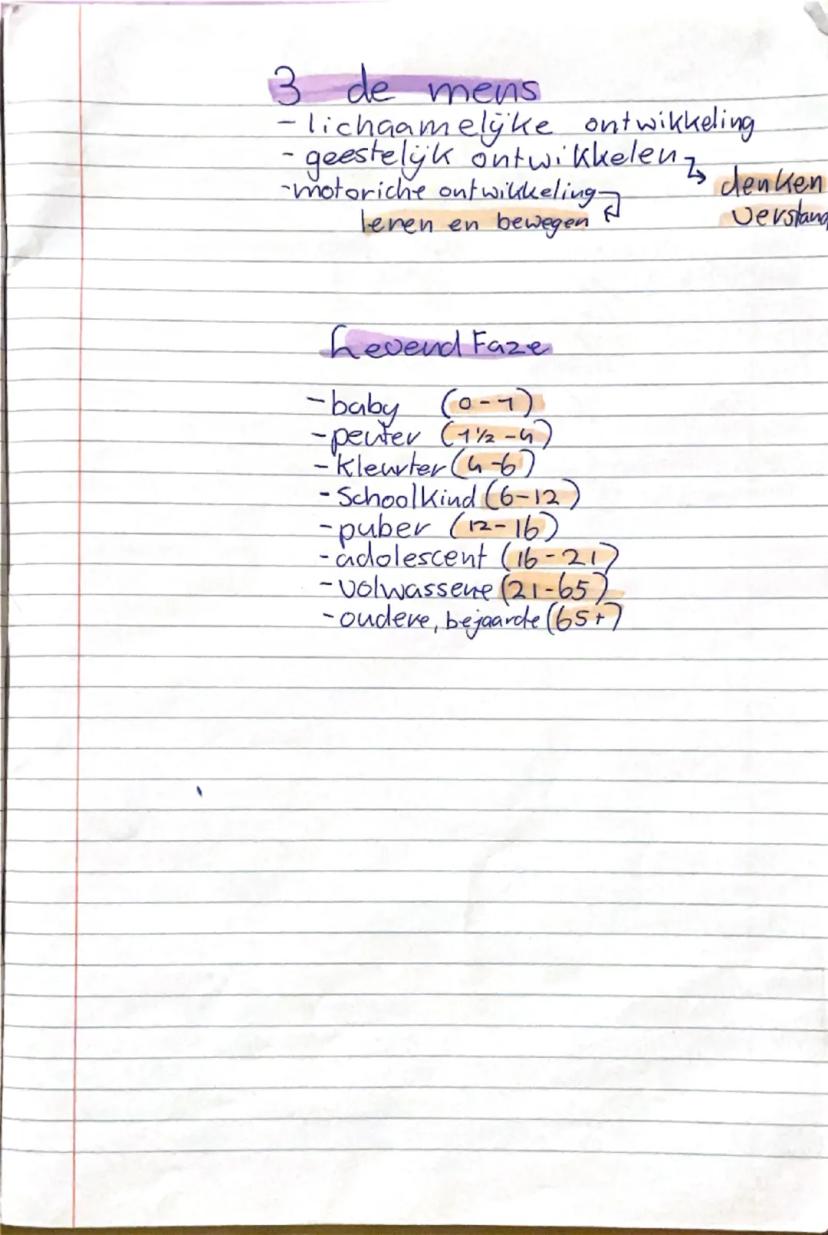 3 de mens
- lichaamelijke ontwikkeling
- geestelijk ontwikkelen ↳ denken
- motoriche ontwikkeling
leren en bewegen ↲ verstand
Levend Faze
- baby (0-1)
- peuter (1½-4)
- Kleurter (4-6)
- SchoolKind (6-12)
- puber (12-16)
- adolescent (16-21)
- volwassene (21-65)
- oudere, bejaarde (65+)